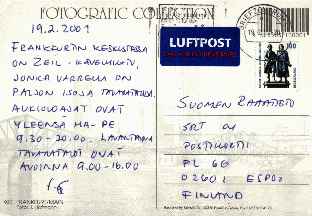 FOTOGRAFIC COLLECTION
19.2.2001
FRANKFURTIN KESKUSTASSA
ON ZEIL-KÄVELYKATU,
JONKA VARRELLA ON
PALJON ISOJA TAVARATALOJA.
AUKIOLOAJAT OVAT
YLEENSÄ MA-PE
9.30-20.00. LAUANTAINA
TAVARATALOT OVAT
AVOINNA 9.00-16.00
LUFTPOST
100
SUOMEN RAAMATTU
SRT
POSTIKORTTI
PL 66
02601 ESPOO
FINLAND
FRANKFURT/MAIN